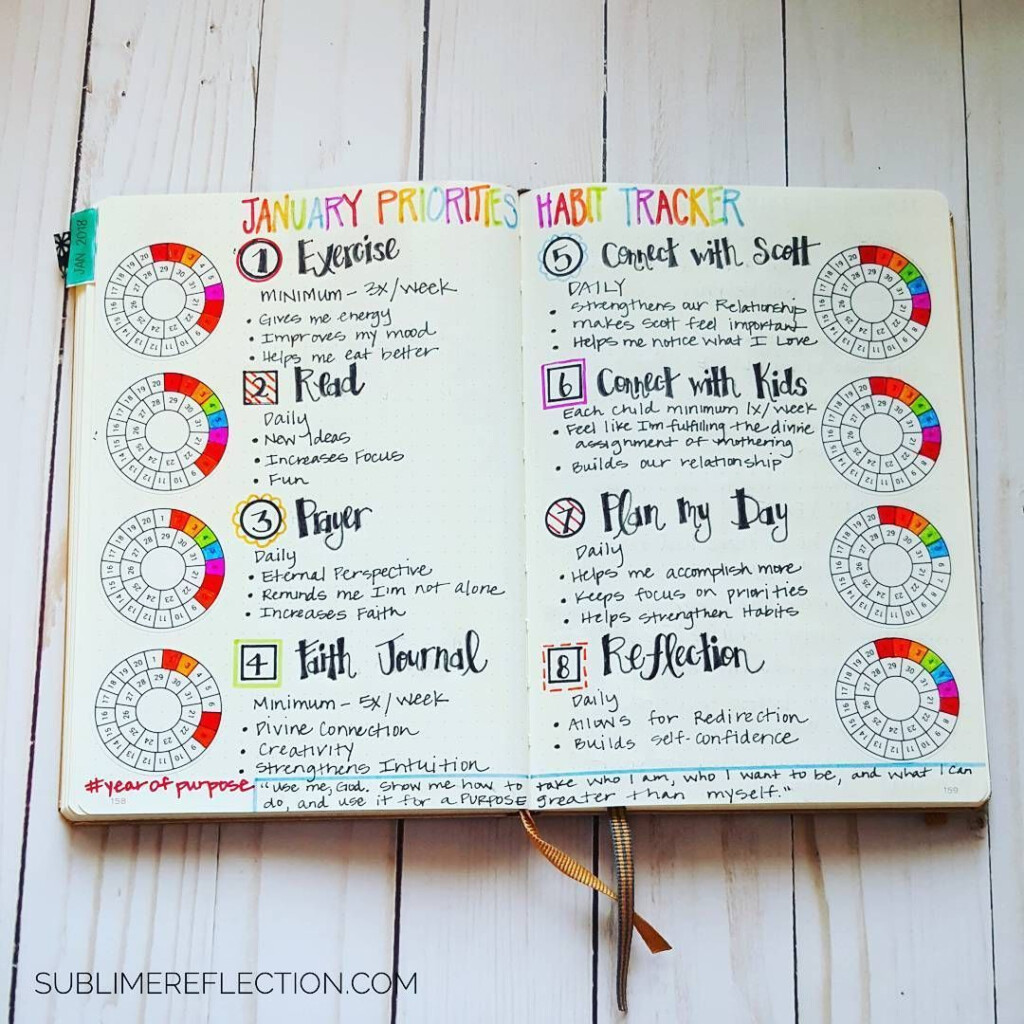 JANUARY PRIORITIES HABIT TRACKER
JAN. 2018
1 Exercise
MINIMUM - 3x/week
• Gives me energy
• Improves my mood
• Helps me eat better
2 Read
Daily
• New Ideas
• Increases Focus
• Fun
3 Prayer
Daily
• Eternal Perspective
• Reminds me I'm not alone
• Increases Faith
4 Faith Journal
Minimum - 5x/week
• Divine Connection
• Creativity
• Strengthens Intuition
5 Connect with Scott
DAILY
• strengthens our Relationship
• makes Scott feel important
• Helps me notice what I Love
6 Connect with Kids
Each child minimum 1x/week
• Feel like I'm fulfilling the divine
assignment of mothering
• Builds our relationship
7 Plan my Day
Daily
• Helps me accomplish more
• Keeps focus on priorities
• Helps strengthen Habits
8 Reflection
Daily
• Allows for Redirection
• Builds self-confidence
#yearofpurpose
"use me, God. Show me how to take who I am, who I want to be, and what I can
do, and use it for a PURPOSE greater than myself."
158
159
SUBLIMEREFLECTION.COM